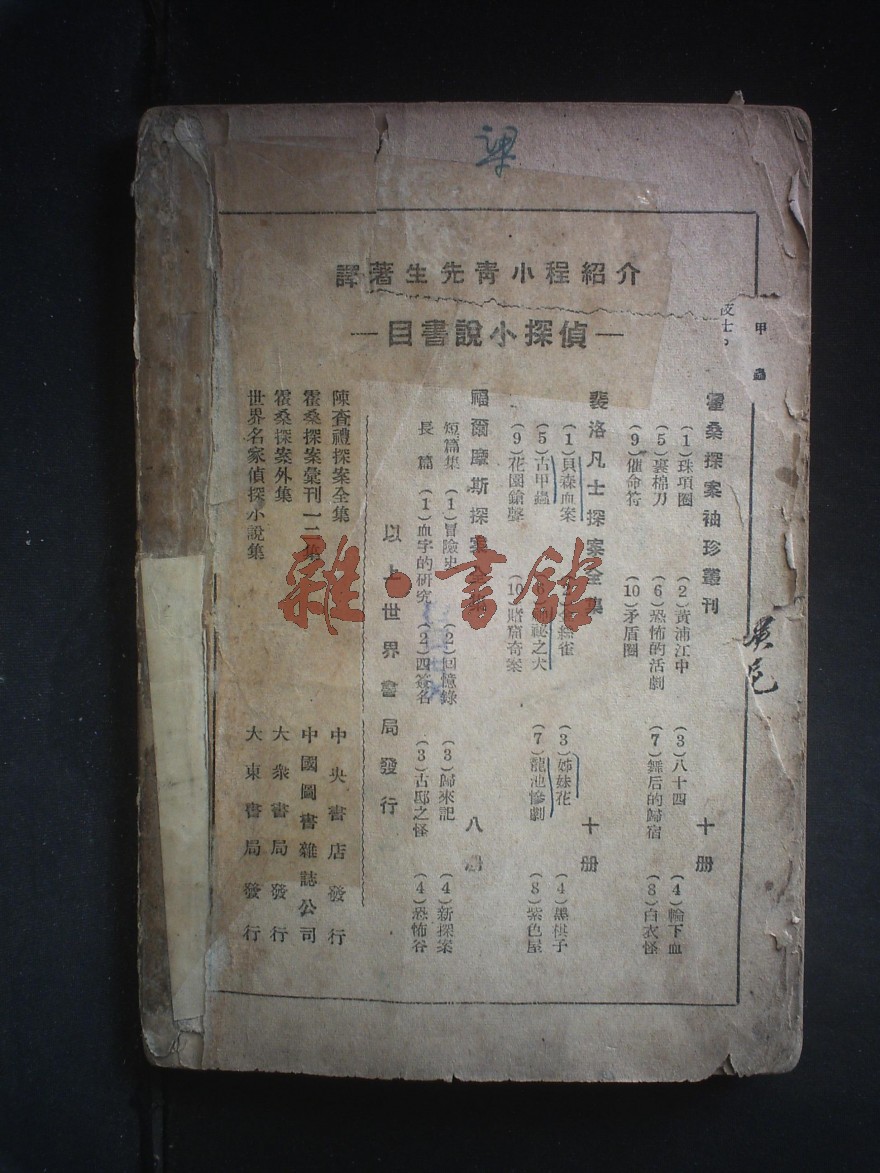 梁
介紹程小青先生著譯
—偵探小說書目—
甲 蟲
霍桑探案袖珍叢刊 十册
(1)珠項圈 (2)黃浦江中 (3)八十四 (4)輪下血
(5)裹棉刀 (6)恐怖的活劇 (7)舞后的歸宿 (8)白衣怪
(9)催命符 (10)矛盾圈
斐洛凡士探案全集 十册
(1)貝森血案 (3)姊妹花 (4)黑棋子
(5)古甲蟲 (6)神祕之犬 (7)龍池慘劇 (8)紫色屋
(9)花園鎗聲 (10)賭窟奇案
福爾摩斯探案 八册
短篇集 (1)冒險史 (2)回憶錄 (3)歸來記 (4)新探案
長篇 (1)血字的研究 (2)四簽名 (3)古邸之怪 (4)恐怖谷
以上世界書局發行
陳查禮探案全集 中央書店發行
霍桑探案彙刊一二集 中國圖書雜誌公司
霍桑探案外集 大衆書局發行
世界名家偵探小說集 大東書局發行
雜·書館